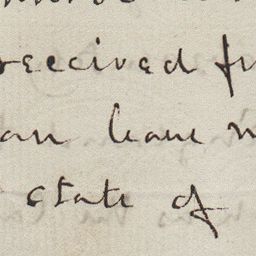 received fr
an leave n
state of